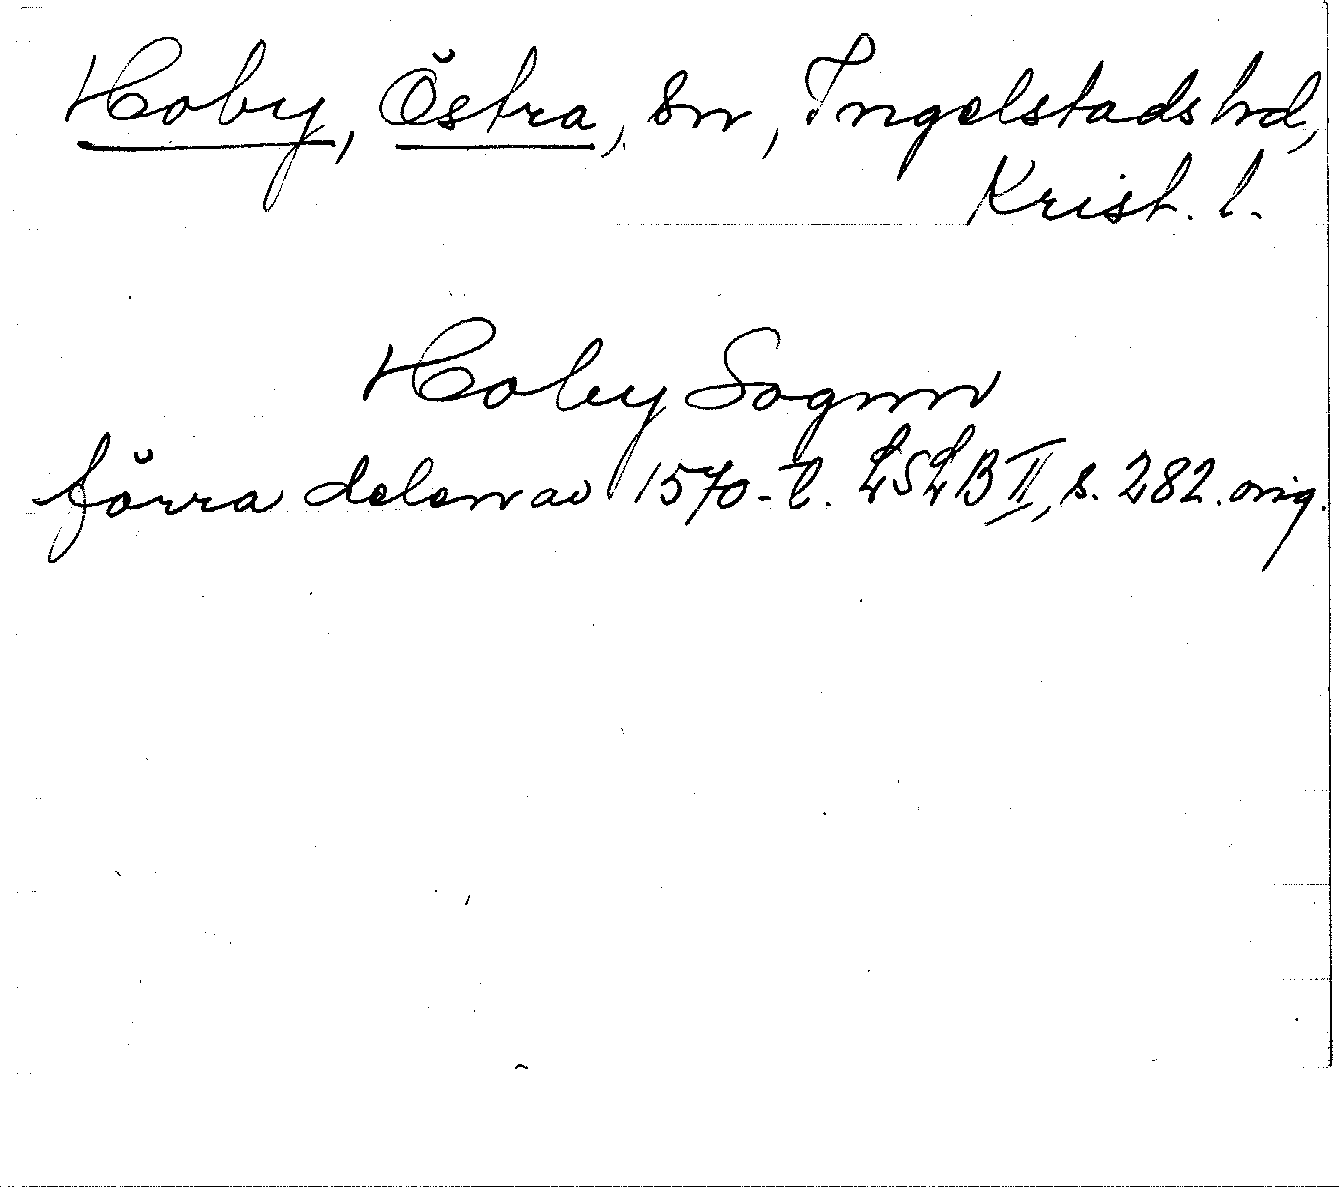 Hoby, Östra, sn, Ingelstads hd,
Krist. l.
Hoby Sognn
förra delen av 1570-t. LSLB II, s. 282. orig.